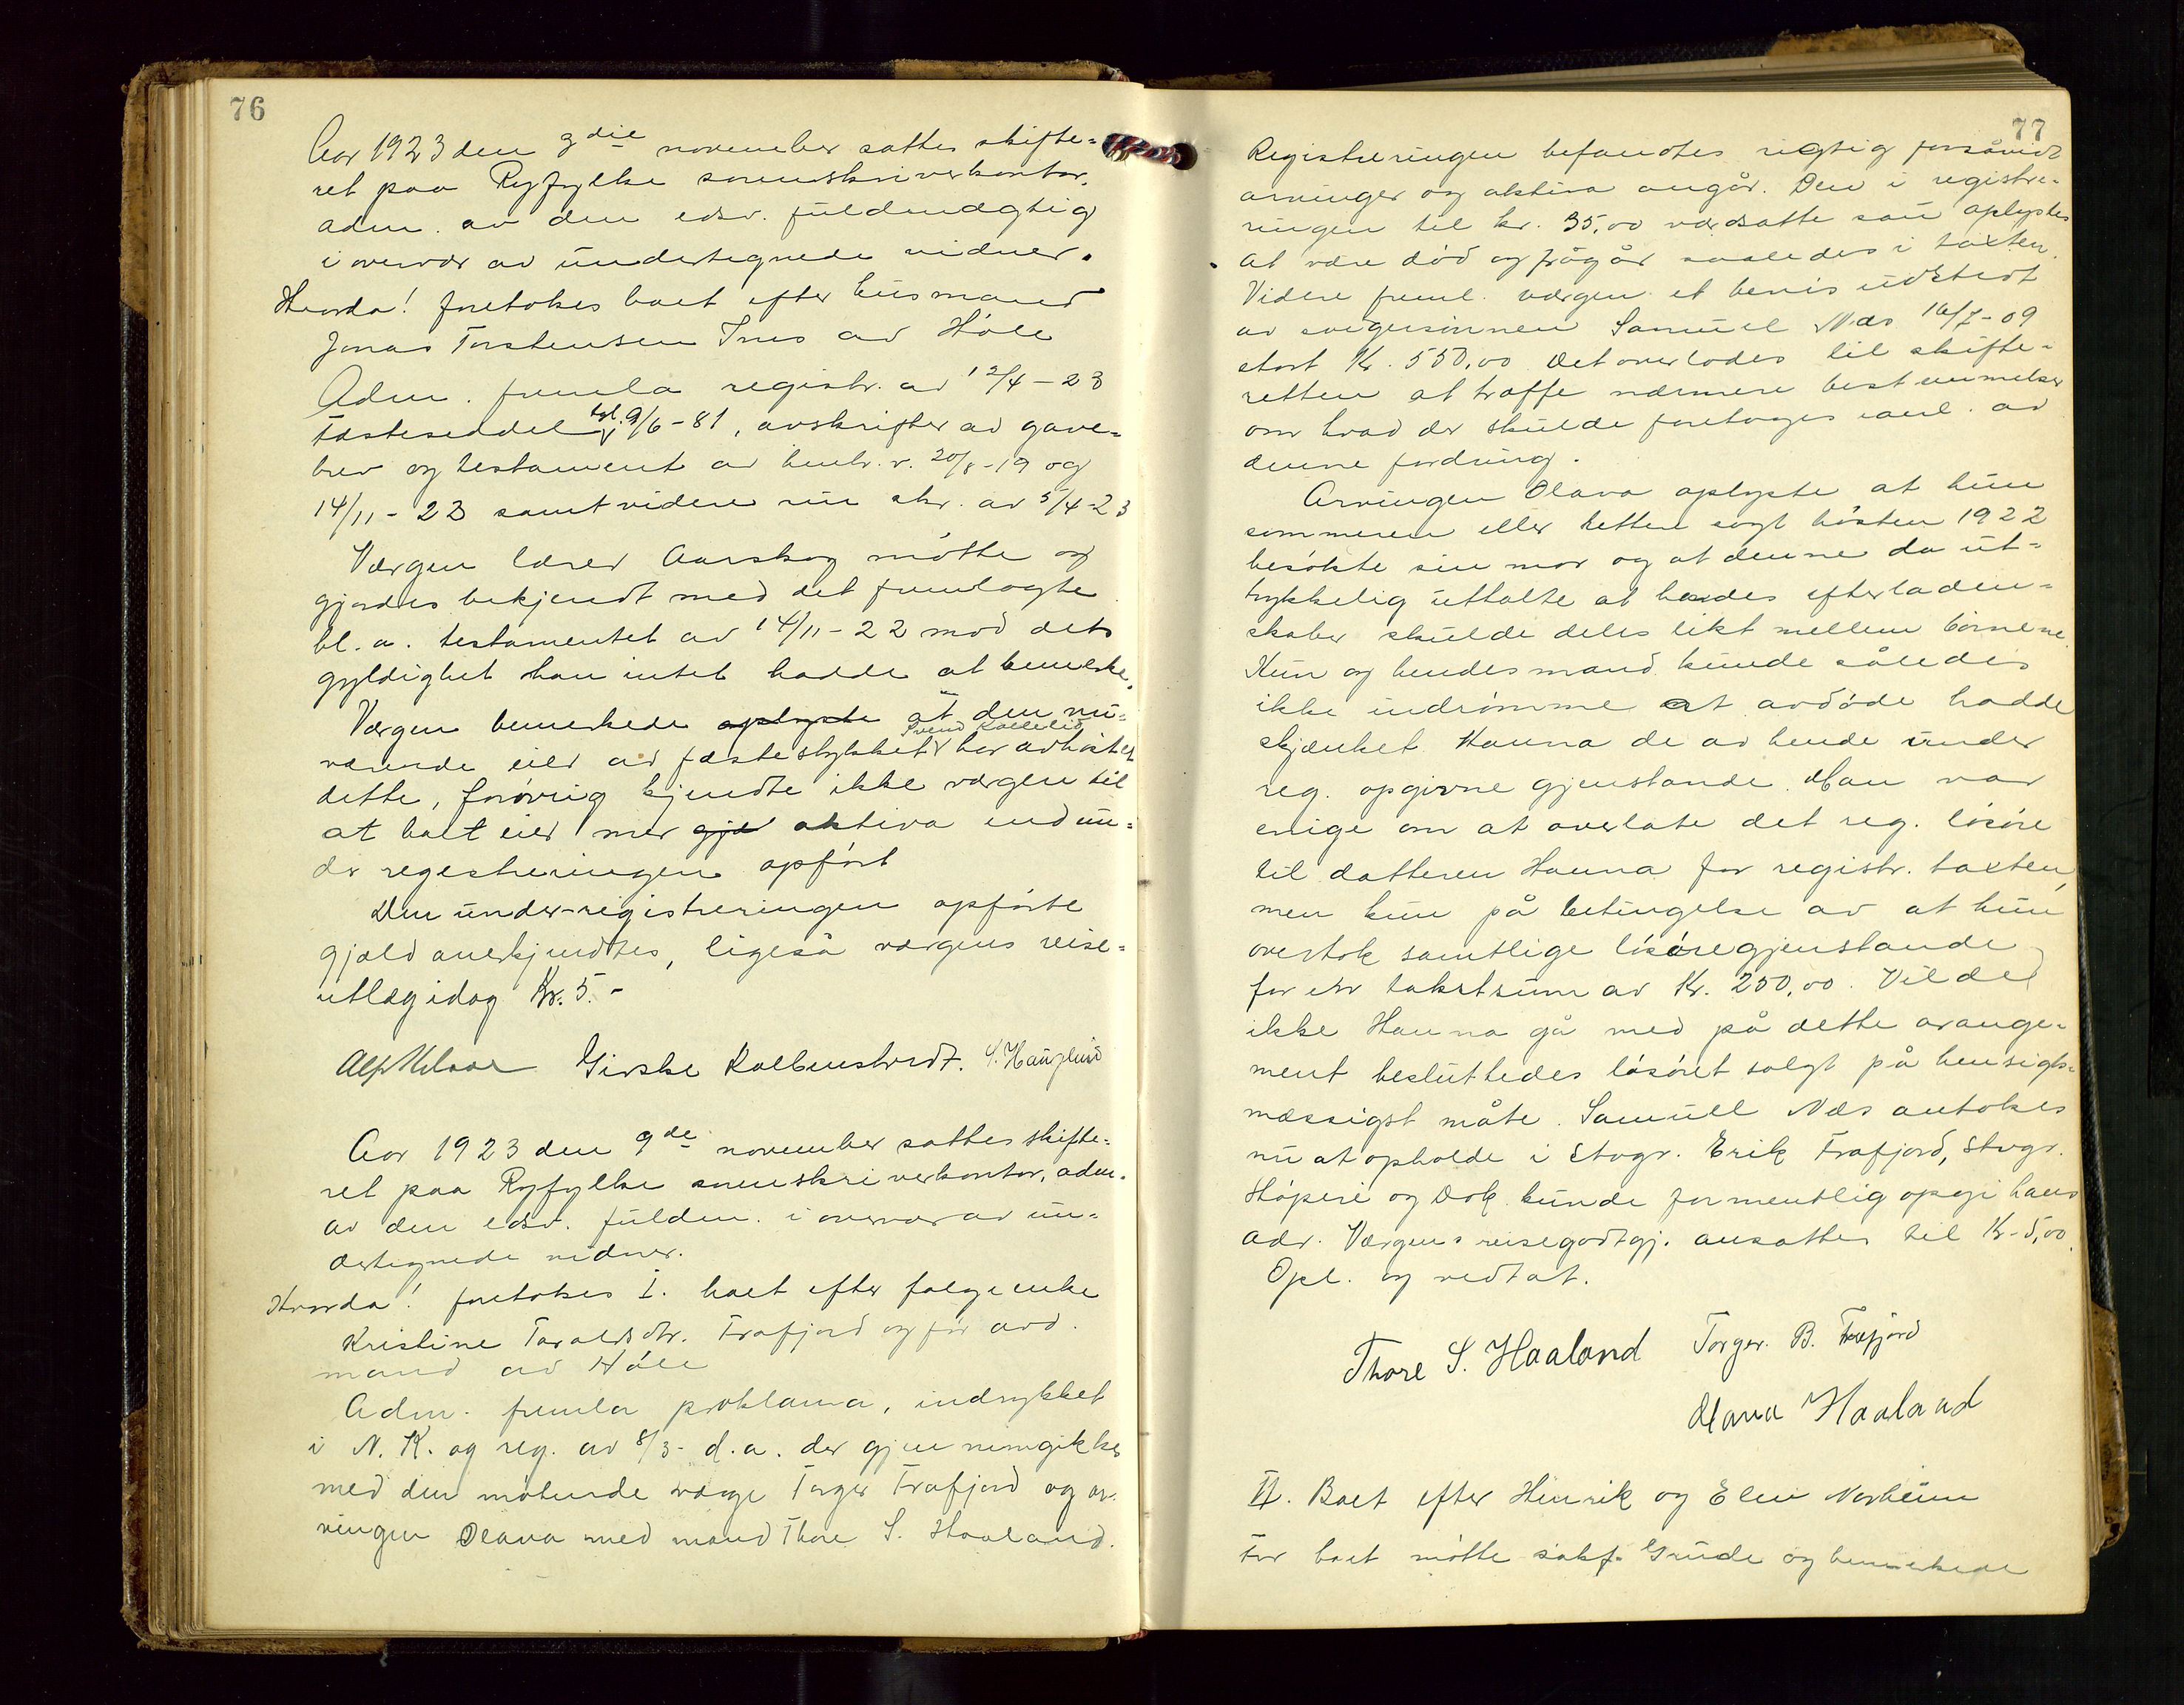 76
Aar 1923 den 3die november sattes skifte-
ret paa Ryfylke sorenskriverkontor,
adm. av den edsv. fuldmægtig
i overvær av undertegnede vidner.
Hvorda! foretokes boet efter husmand
Jonas Torstensen Ims av Höle
Adm. fremla registr. av 12/4-23
Festeseddel tgl. 9/6-81, avskrifter av gave-
brev og testament av henh. v. 20/8-19 og
14/11-23 samt videre skr. av 5/4-23
Vergen lærer Aarskog mötte og
gjordes bekjendt med det fremlagte
bl. a. testamentet av 14/11-22 mod dets
gyldighet han intet hadde at bemerke.
Vergen bemerkede oplyste at den nu-
værende eier av festestykket Svend Kallelid har avhöstet
dette, forövrig kjendte ikke vergen til
at boet eier mer gje aktiva end un-
der registreringen opfört
Den under registreringen opförte
gjæld anerkjendtes, ligeså vergens reise-
utlæg idag Kr. 5.-
Girske Kallenstvedt. S. Haugland
Aar 1923 den 9de november sattes skifte-
ret paa Ryfylke sorenskriverkontor, adm.
av den edsv. fuldm. i overvær av un-
dertegnede vidner.
Hvorda! foretokes I. boet efter følgeenke
Kristine Taraldsdtr. Frafjord og før avd.
mand av Höle
Adm. fremla proklama, indrykket
i N. K. og reg. av 8/3- d.a. der gjennemgikkes
med den mötende verge Torger Frafjord og ar-
vingen Olava med mand Thore S. Haaland.
77
Registreringen befandtes rigtig forsåvidt
arvinger og aktiva angår. Den i registre-
ringen til kr. 35,00 værdsatte sau oplystes
at være död og frågår saaledes i taxten.
Videre freml. vergen et bevis udstedt
av svigersönnen Samuel Næs 16/7-09
stort Kr. 550,00 Det overlodes til skifte-
retten at træffe nærmere bestemmelser
om hvad der skulde foretages i anl. av
denne fordring.
Arvingen Olava oplyste at hun
sommeren eller rettere sagt hösten 1922
besökte sin mor og at denne da ut-
trykkelig uttalte at hendes efterladen-
skaber skulde deles likt mellem börnene
Hun og hendes mand kunde således
ikke indrömme at avdöde hadde
skjænket Hanna de av hende under
reg. opgivne gjenstande. Man var
enige om at overlate det reg. lösöre
til datteren Hanna for registr. taxten,
men kun på betingelse av at hun
overtok samtlige lösöregjenstande
for en takstsum av Kr. 250,00. Vilde
ikke Hanna gå med på dette arange-
ment besluttedes lösöret solgt på hensigts-
mæssigst måte. Samuel Næs antokes
nu at opholde i Stvgr. Erik Frafjord, Stvgr.
Stöperi og Dok kunde formentlig opgi hans
adr. Vergens reisegodtgj. ansattes til Kr-5,00.
Opl. og vedtat.
Thore S. Haaland Torger. B. Frafjord
Olava Haaland
II. Boet efter Henrik og Elen Norheim
For boet mötte sakf. Grude og bemerkede